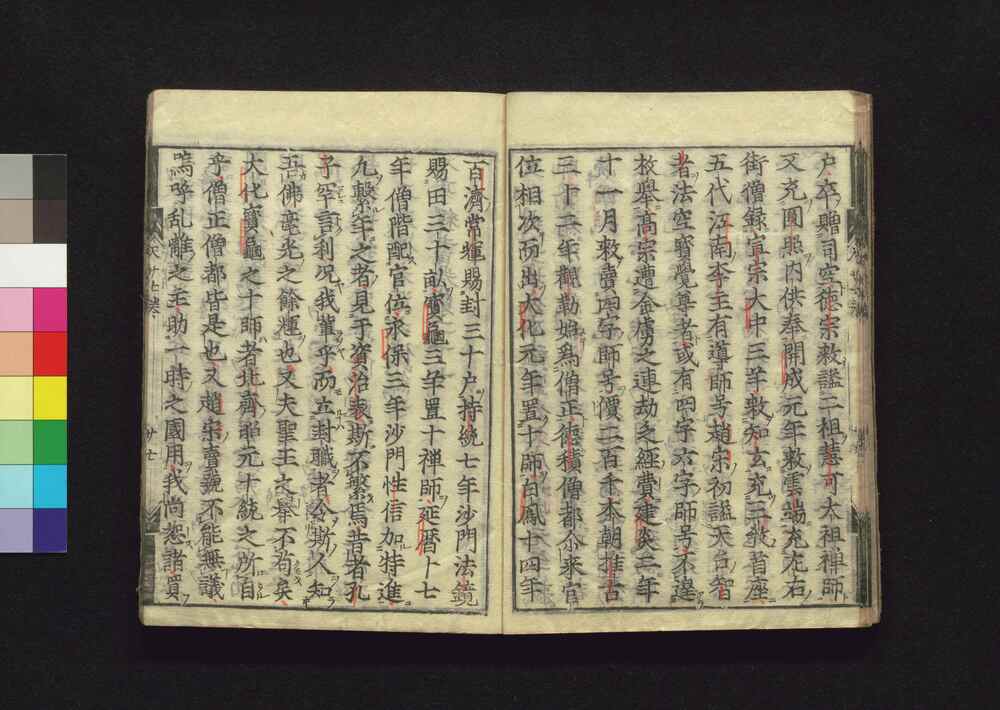 户卒贈司空徳宗敕謚二祖慧可大祖禅師
又充圓照内供奉開成元年敕雲端充左右
街僧録宣宗大中三年敕知玄充三教首座
五代江南李主有導師号趙宗初謚天台智
者法空寶覺尊者或有四字六字師号不遑
枚舉髙宗遭金虜之連劫之經費建炎三年
十一月敕賣四字師号價二百千本朝推古
三十二年觀勒始爲僧正徳積僧都尒来官
位相次而出大化元年置十師白鳳十四年
百濟常輝賜封三十户持統七年沙門法鏡
賜田三十畝寳龜三年置十禅師延暦十七
年僧階配官位承保三年沙門性信加特進
九繫年之者見于資治表斯不繁焉昔者孔
子罕言利况我輩乎而立封職者令斯人知
吾佛毫光之餘種也又夫聖王之擧不苟矣
大化寳龜之十師者北齊昭元十統之所自
乎僧正僧都皆是也又趙宋賣號不能無議
嗚呼乱離之主助一時之國用我尚恕諸買